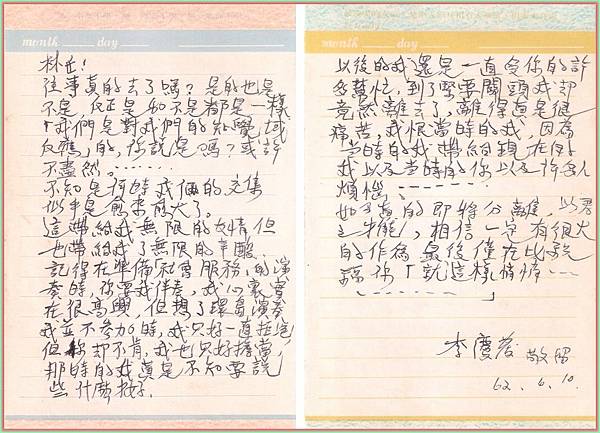 month day
林芷!
往事真的去了嗎?是的也是
不是,反正是和不是都是一樣
「我們是對我們的知覺域
反應」的,你說是嗎?或許
不盡然。------
不知是何時我倆的交集
似乎是愈來愈大了。
這帶給我無限的友情但
也帶給我了無限的辛酸.
記得在準備 服務,的演
奏時,你要我伴奏,我心裏實
在很高興,但想了環島演奏
我並不參加時,我只好一直拒絕
但你却不肯,我也只好擔當,
那時的我真是不知要說
些什麼 好.
month day
以後的我還是一直受你的許
多幫忙,到了緊要關頭我却
竟然離去了,離得真是很
痛苦,我恨當時的我,因為
當時的我帶給現在的
我以及當時的你以及許多人
煩惱、------
如今真的即將分離,以君
之才能,相信一定有很大
的作為 最後僅在此說
「就這樣悄悄---
--------」
李慶 敬留
62. 6. 10.